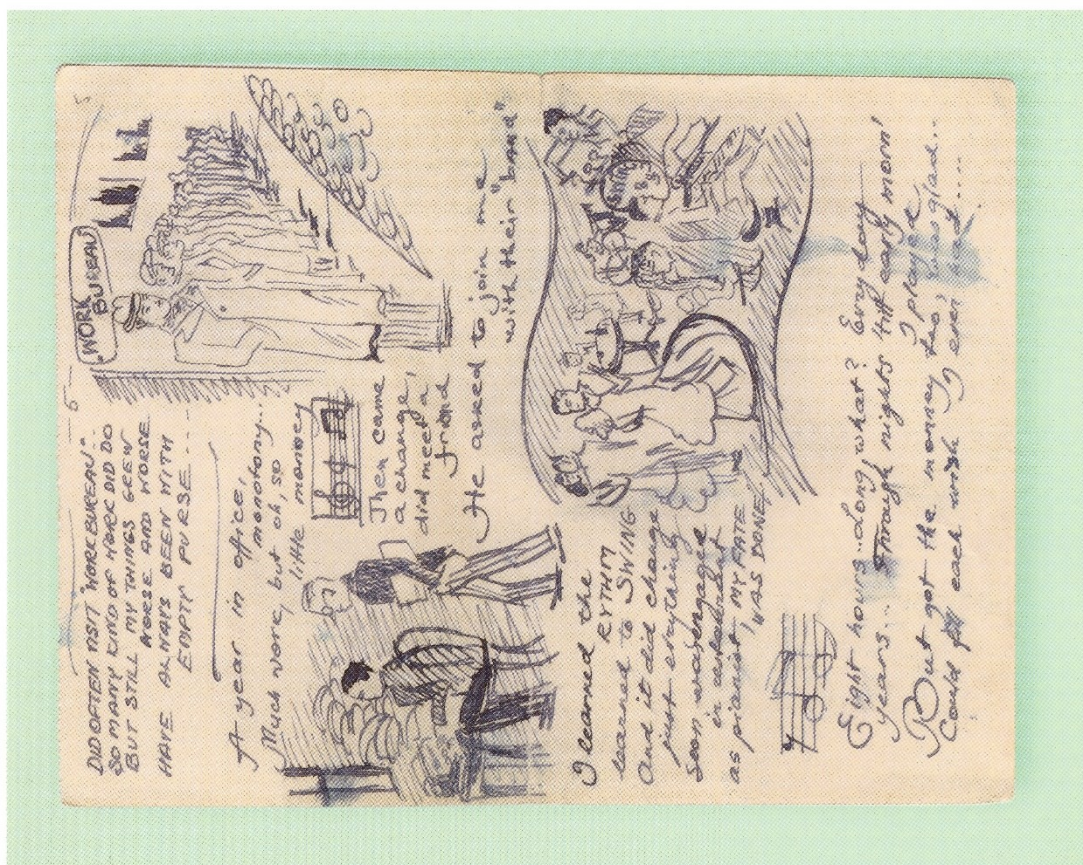 5
DID OFTEN VISIT "WORK BUREAU"..
SO MANY KIND OF WORK DID DO
BUT STILL MY THINGS GREW
WORSE AND WORSE
HAVE ALWAYS BEEN WITH
EMPTY PURSE ....
WORK
BUREAU
A year in office,
monotony...
Much wore, but oh, so
little money
Then came
a change,
did meet a
friend
He asked to join me
with their "band".
I learned the
RYTHM
learned to SWING
And it did change
just
Soon was engaged
in restaurant
as pianist, MY FATE
WAS DONE.
Eight hours..Long, what? Evry day
years... Through nights till early morn'
I played,
But got the monney too, I was glad..
Could each wish I ever had.....